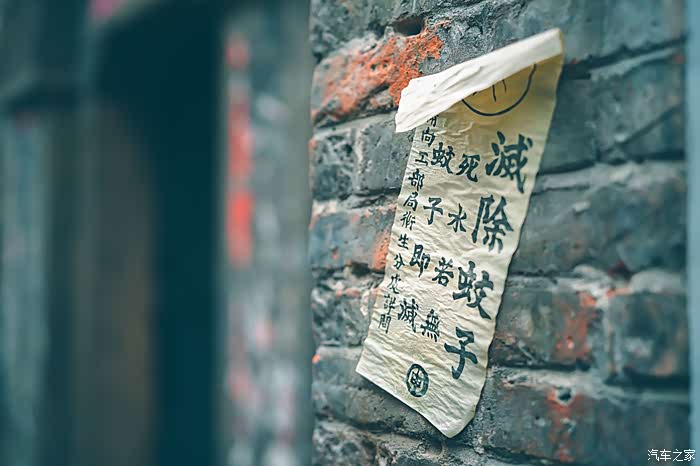 滅除蚊子
死水若無
蚊子即滅
向工部局衛生分處詳問
汽车之家